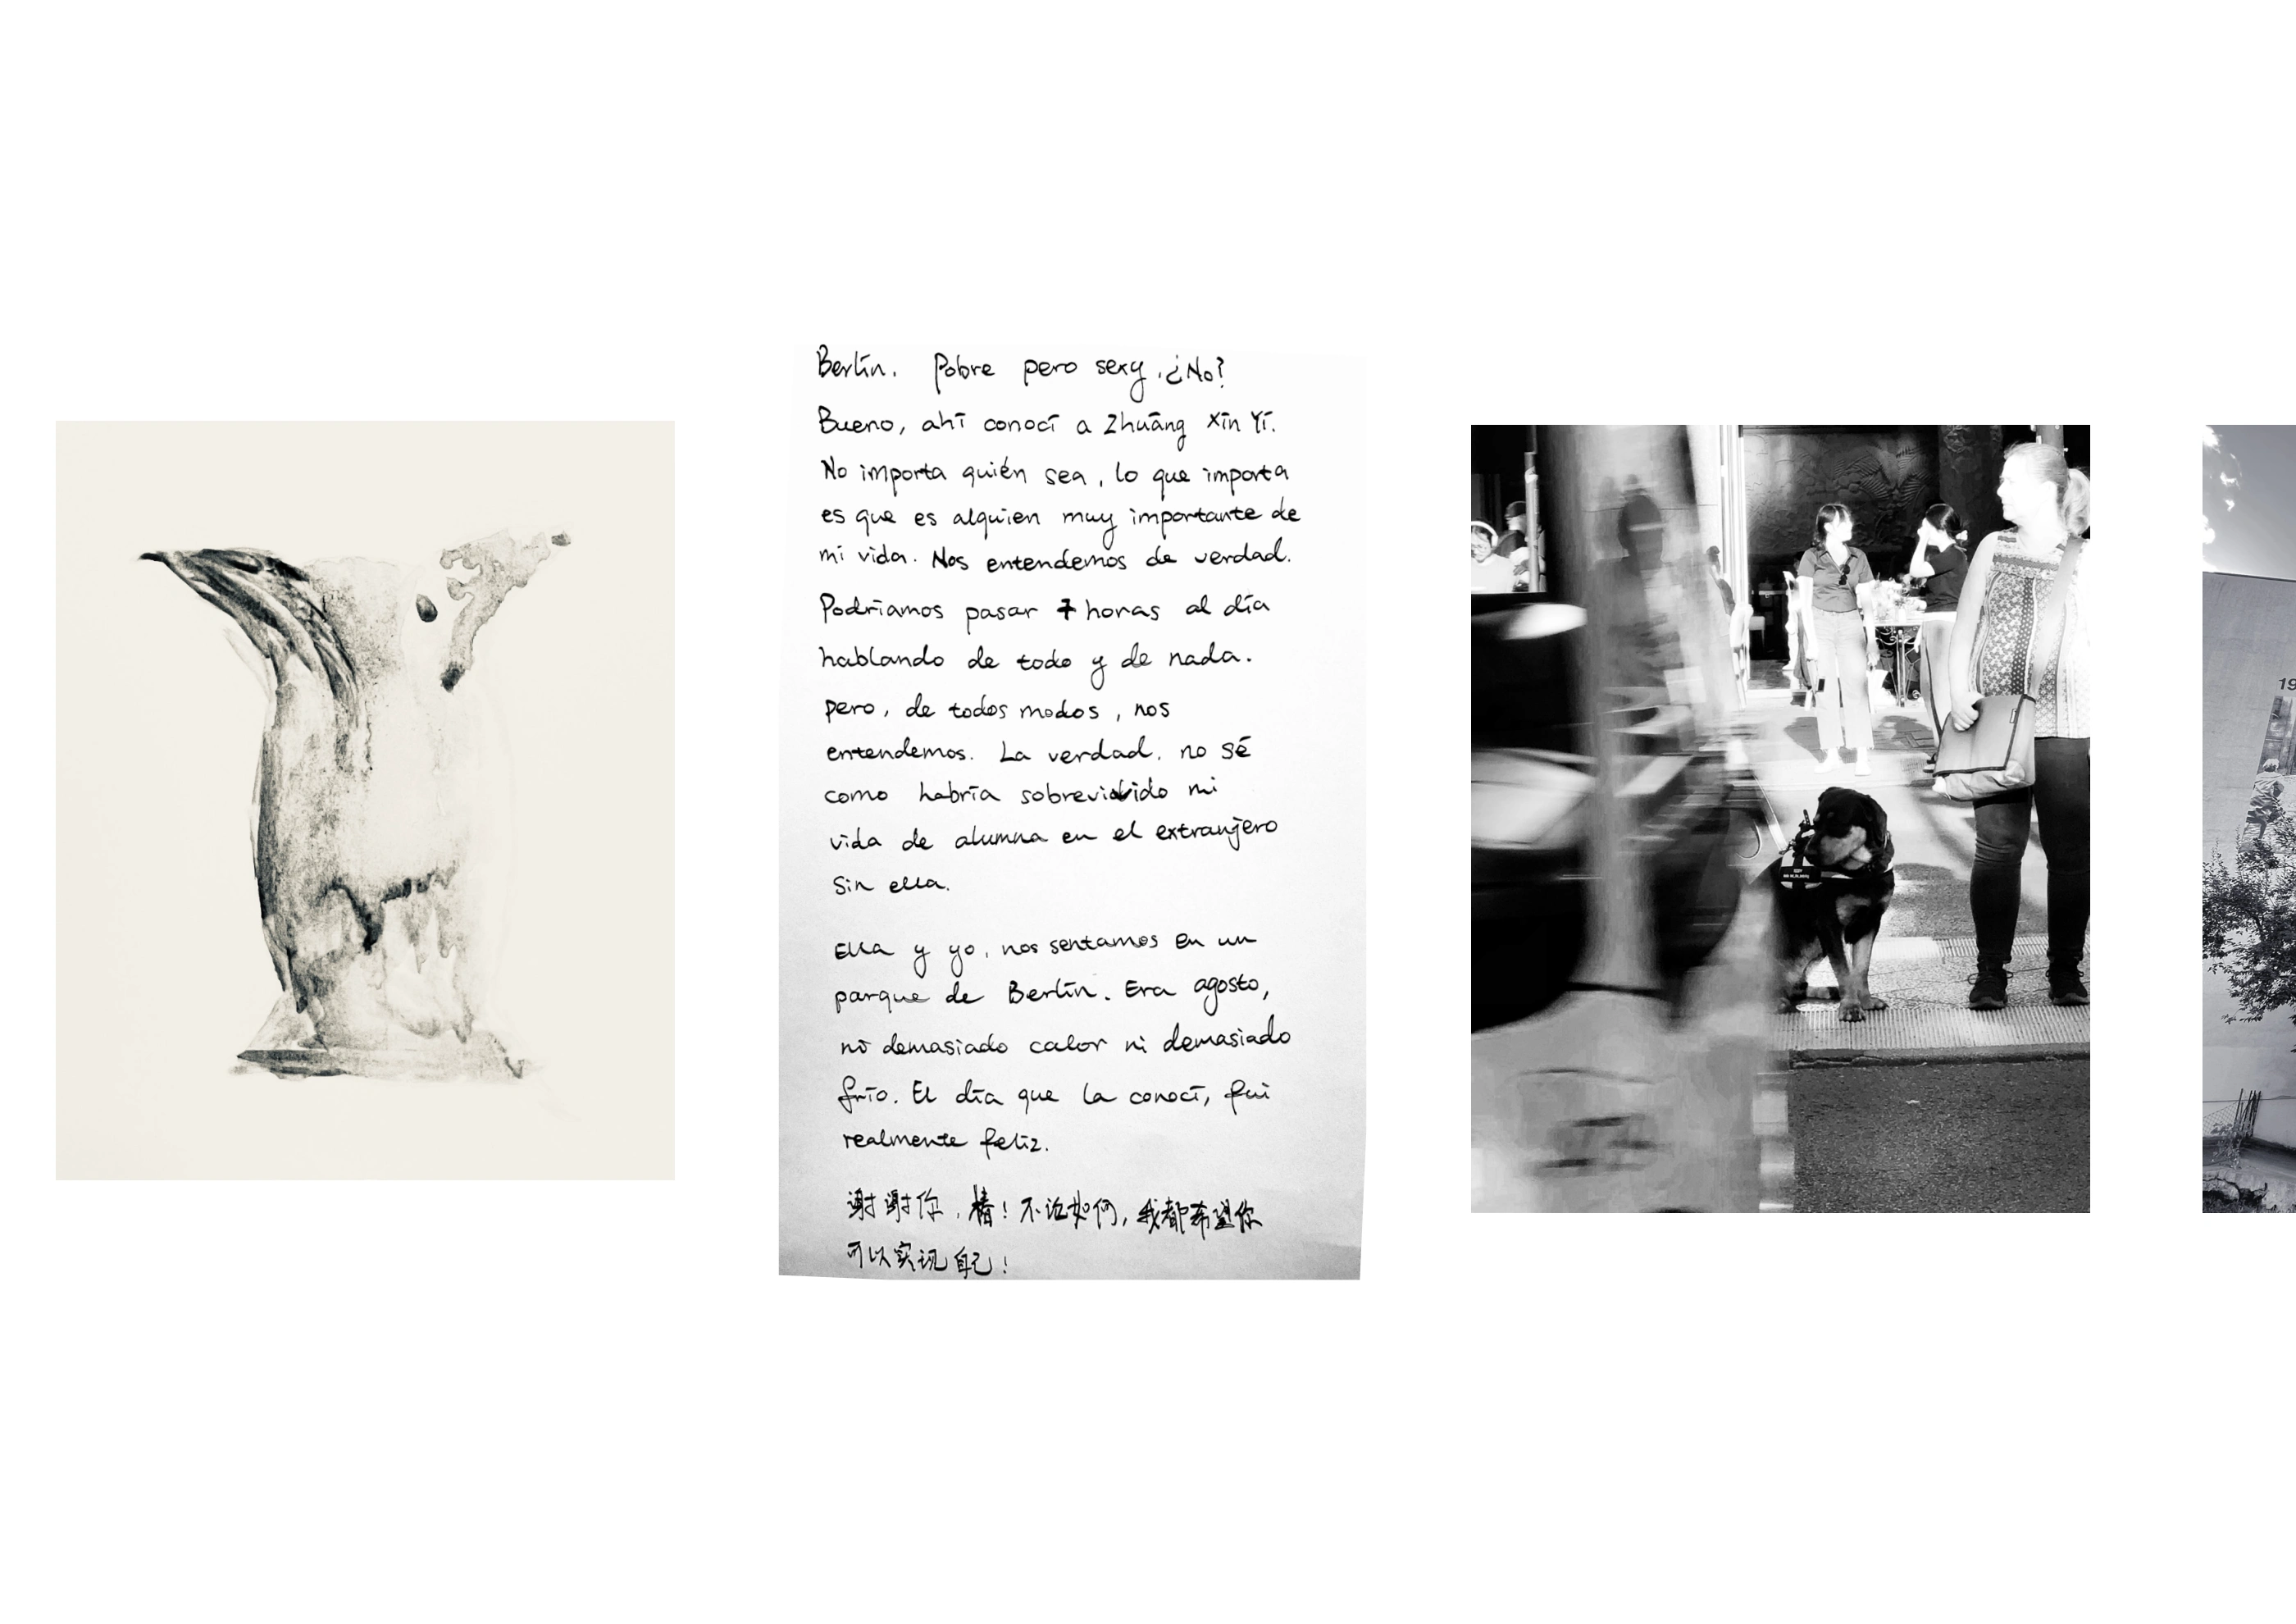 Berlín. Pobre pero sexy. ¿No?
Bueno, ahí conocí a Zhuāng Xīn Yí.
No importa quién sea, lo que importa
es que es alguien muy importante de
mi vida. Nos entendemos de verdad.
Podríamos pasar 7 horas al día
hablando de todo y de nada.
pero, de todos modos, nos
entendemos. La verdad, no sé
como habría sobrevivido mi
vida de alumna en el extranjero
sin ella.
Ella y yo, nos sentamos en un
parque de Berlín. Era agosto,
ni demasiado calor ni demasiado
frío. El día que la conocí, fui
realmente feliz.
谢谢你,椿!不论如何,我都希望你
可以实现自己!
19